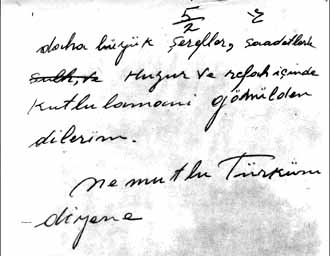 5/2
daha büyük şerefler, saadetlerle
sulh, ve Huzur ve refah içinde
kutlulamanı gönülden
dilerim.
ne mutlu Türküm
diyene